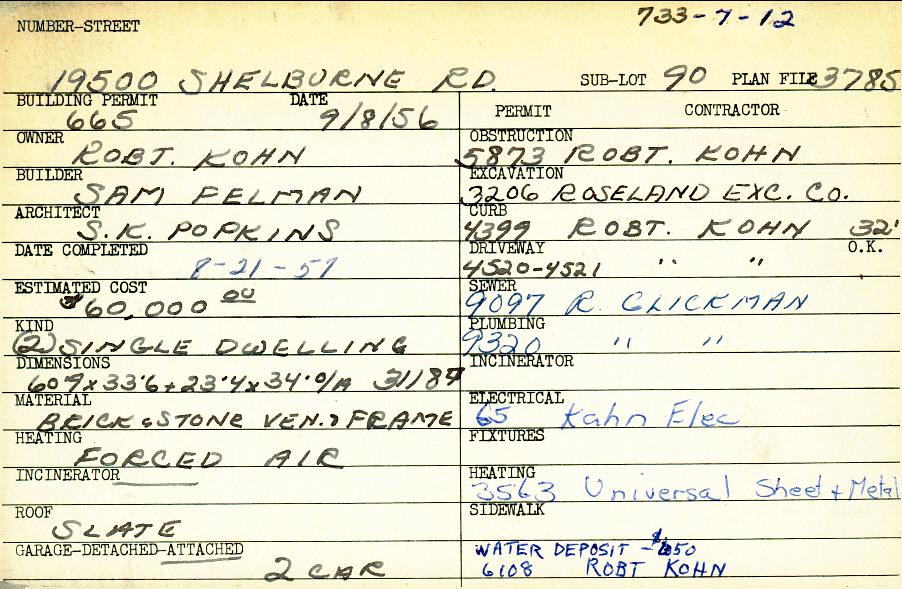 733-7-12
NUMBER-STREET
19500 SHELBURNE RD. SUB-LOT 90 PLAN FILE 3785
BUILDING PERMIT DATE
665 9/8/56
PERMIT CONTRACTOR
OWNER
ROBT. KOHN
OBSTRUCTION
5873 ROBT. KOHN
BUILDER
SAM FELMAN
EXCAVATION
3206 ROSELAND EXC. CO.
ARCHITECT
S.K. POPKINS
CURB
4399 ROBT. KOHN 32'
DATE COMPLETED
8-21-57
DRIVEWAY O.K.
4520-4521 " "
ESTIMATED COST
$60,000 00
SEWER
9097 R. GLICKMAN
KIND
(2) SINGLE DWELLING
PLUMBING
9320 " "
DIMENSIONS
60'9 x 33'6 + 23'4 x 34'0/A
INCINERATOR
MATERIAL
BRICK & STONE VEN. & FRAME
ELECTRICAL
65 Kahn Elec
HEATING
FORCED AIR
FIXTURES
INCINERATOR
HEATING
3563 Universal Sheet + Metal
ROOF
SLATE
SIDEWALK
GARAGE-DETACHED-ATTACHED
2 CAR
WATER DEPOSIT -
6108 ROBT KOHN